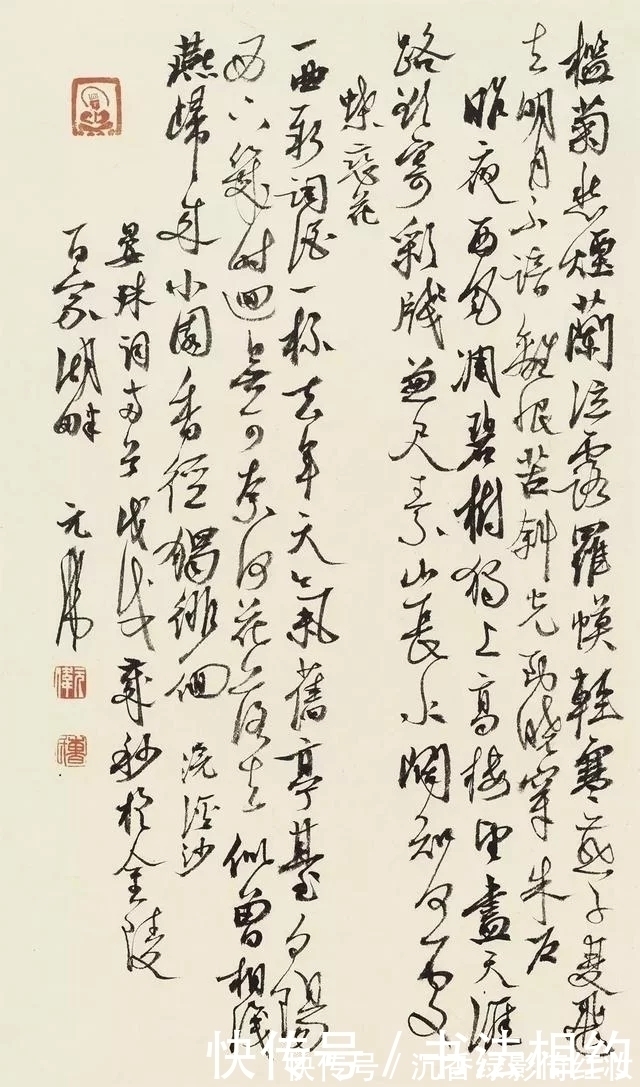 檻菊愁煙蘭泣露羅幙輕寒燕子雙飛
去明月不諳離恨苦斜光到曉穿朱户
昨夜西風凋碧樹獨上高樓望盡天涯
路欲寄彩牋兼尺素山長水闊知何處
蝶戀花
一曲新詞酒一杯去年天氣舊亭臺夕陽
西下幾時迴無可奈何花落去似曾相識
燕歸來小園香徑獨徘徊 浣溪沙
晏殊詞兩首戊戌歲秒於金陵
百家湖畔 元
快传号 / 书法相约
快传号